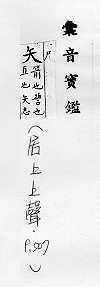 彙音寶鑑
矢
箭也誓也
直也矢志
(居上上聲，P.507)